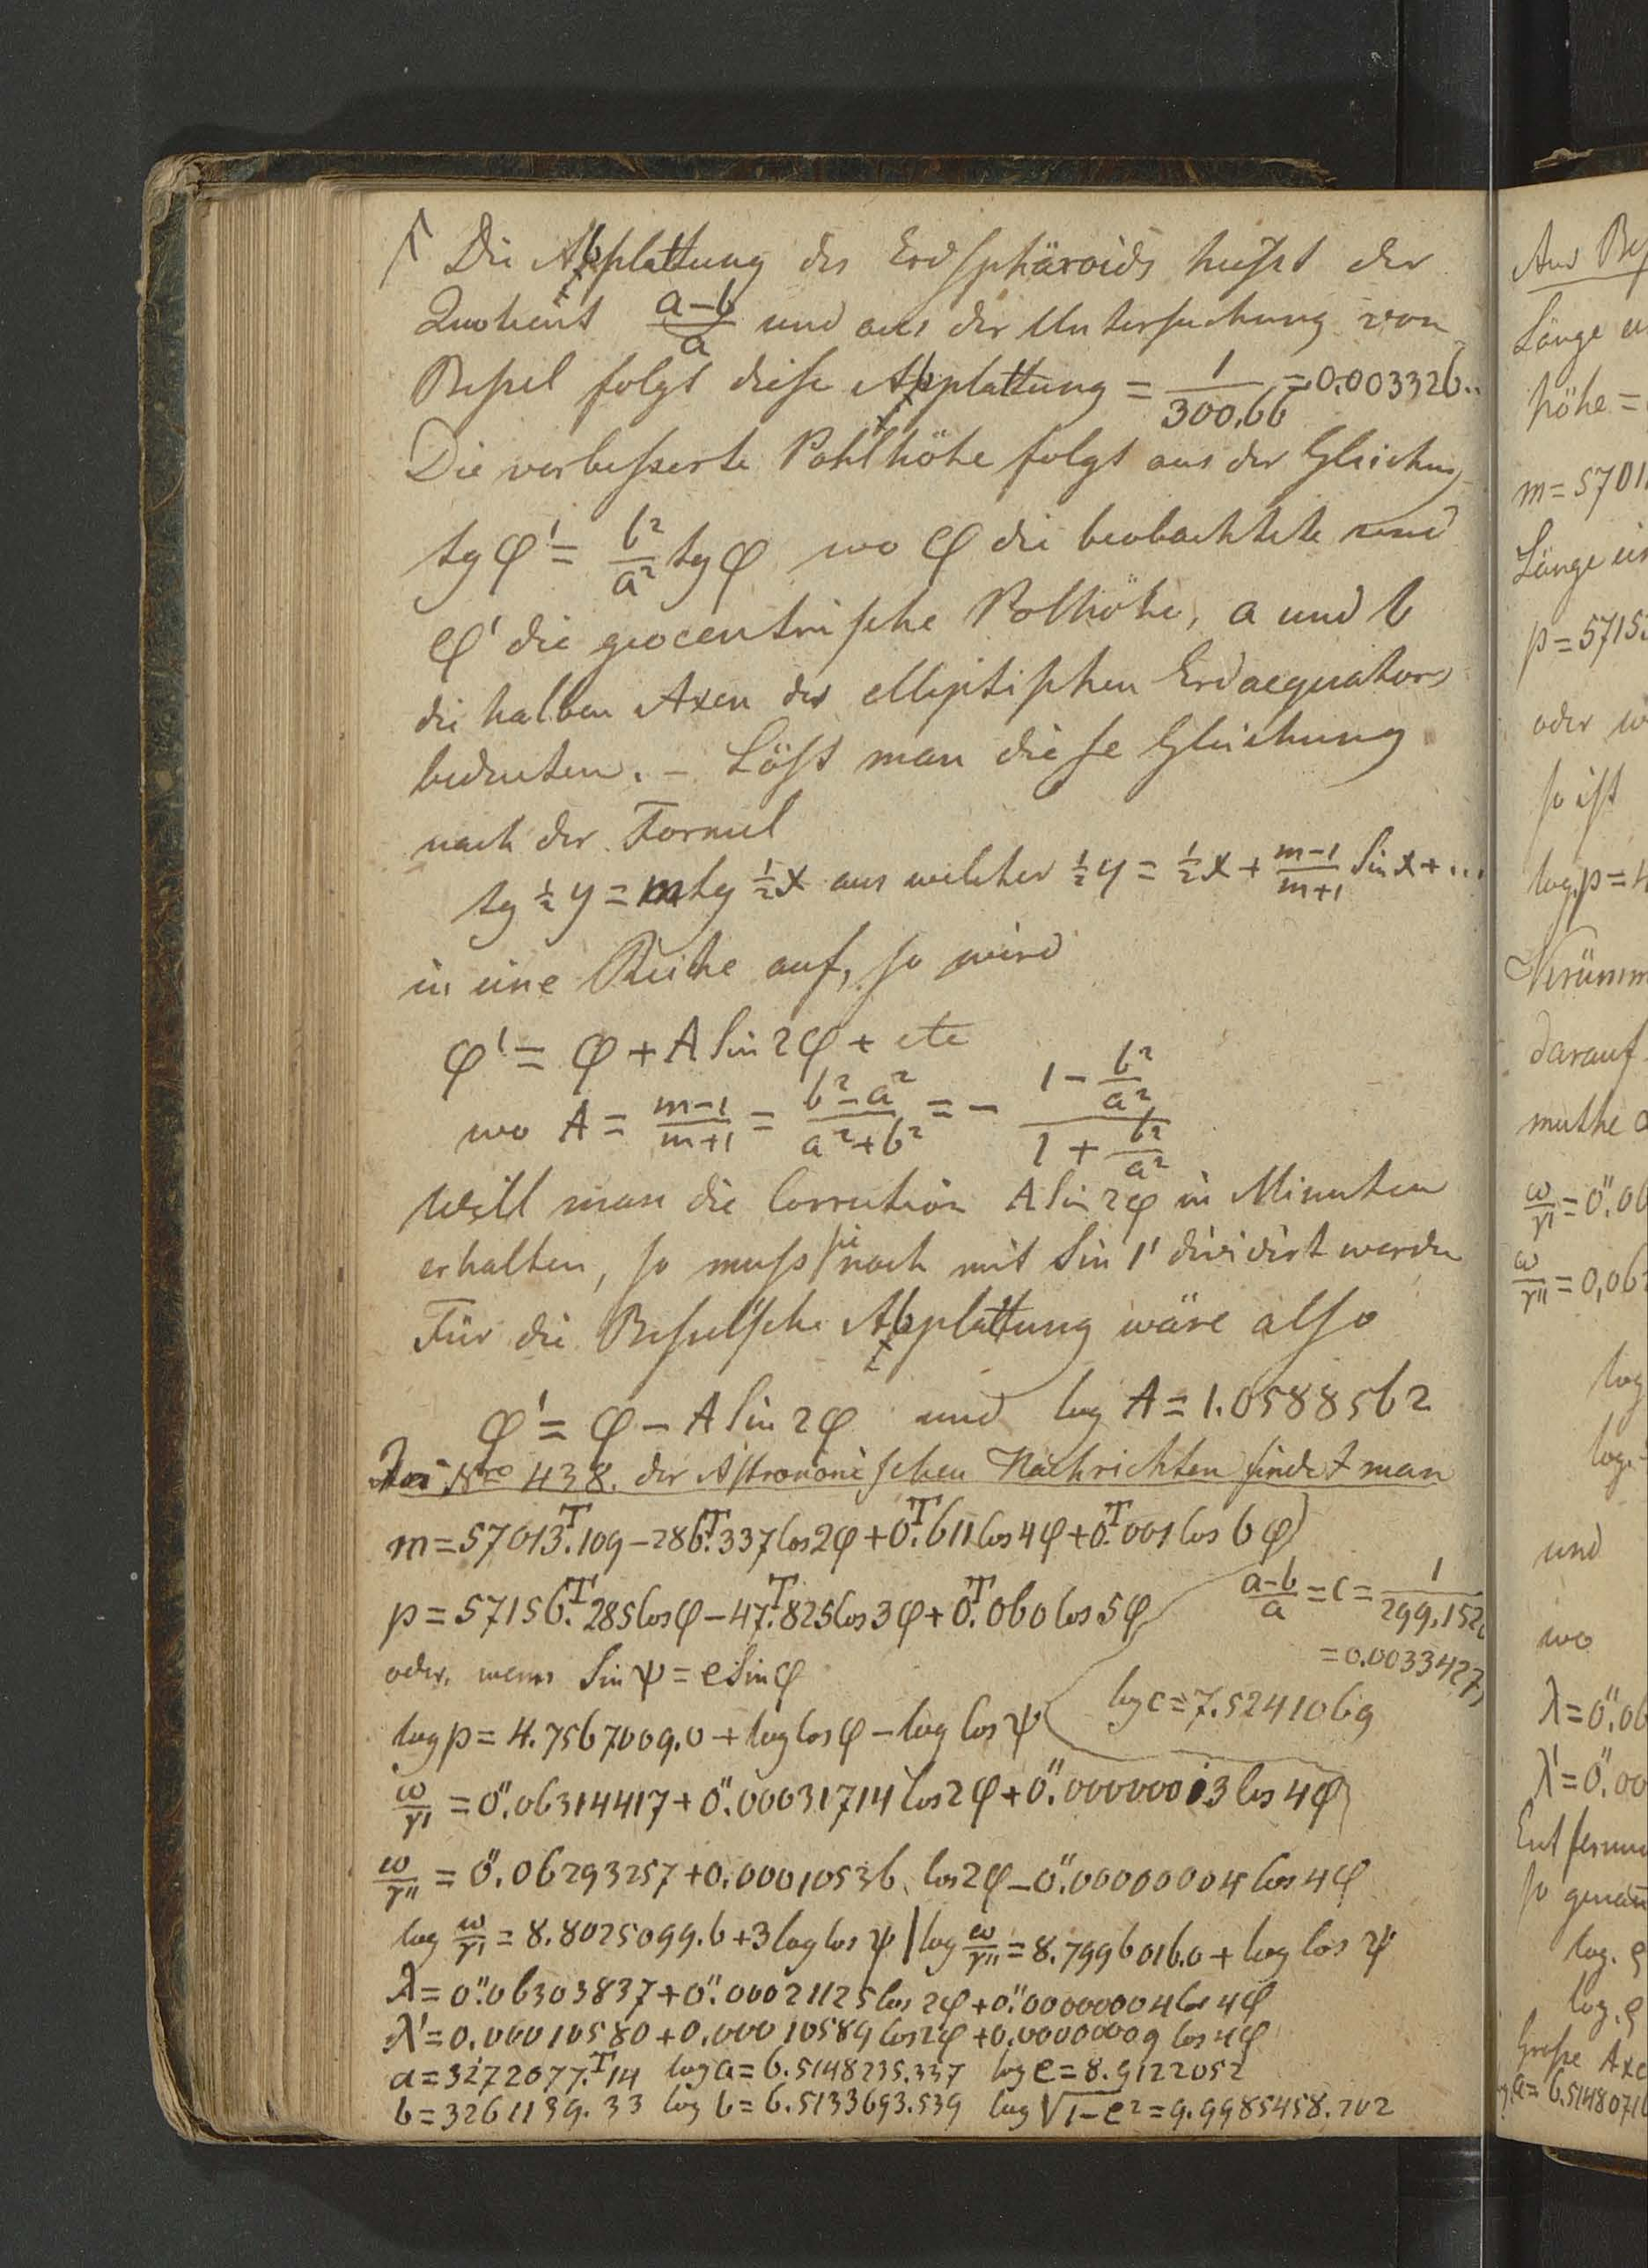 Die Abplattung des Erdsphäroids heißt der
Quotient (a-b)/a und aus der Untersuchung von
Beßel folgt diese Abplattung = 1/300.66 = 0.003326..
Die verbeßerte Pohlhöhe folgt aus der Gleichung
tg φ' = b²/a² tg φ wo φ die beobachtete und
φ' die geocentrische Polhöhe, a und b
die halben Axen des elliptischen Erdaequators
bedeuten. – Löst man diese Gleichung
nach der Formel
tg ½ y = m tg ½ x aus welcher ½ y = ½ x + (m-1)/(m+1) Sin x + ...
in eine Reihe auf, so wird
φ' = φ + A Sin 2φ + etc
wo A = (m-1)/(m+1) = (b²-a²)/(a²+b²) = - (1 - b²/a²)/(1 + b²/a²)
Will man die Correction A Sin 2φ in Minuten
erhalten, so muss sie noch mit Sin 1' dividirt werden
Für die Beßel'sche Abplattung wäre also
φ' = φ - A Sin 2φ und log A = 1.0588562
Nro 438. der Astronomischen Nachrichten findet man
m = 57013.ᵀ109 - 286.ᵀ337 Cos 2φ + 0.ᵀ611 Cos 4φ + 0.ᵀ001 Cos 6φ
p = 57156.ᵀ285 Cos φ - 47.ᵀ825 Cos 3φ + 0.ᵀ060 Cos 5φ
(a-b)/a = c = 1/299.152
= 0.0033427
oder, wenn Sin ψ = e Sin φ
log c = 7.5241069
log p = 4.7567009.0 + log Cos φ - log Cos ψ
ω/r' = 0".06314417 + 0".00031714 Cos 2φ + 0".00000013 Cos 4φ
ω/r'' = 0".06293257 + 0.00010536 Cos 2φ - 0".00000004 Cos 4φ
log ω/r' = 8.8025099.6 + 3 log Cos ψ | log ω/r'' = 8.7996016.0 + log Cos ψ
λ = 0".06303837 + 0".00021125 Cos 2φ + 0".00000004 Cos 4φ
λ' = 0.00010580 + 0.00010589 Cos 2φ + 0.00000009 Cos 4φ
a = 3272077.ᵀ14 log a = 6.5148235.337 log e = 8.9122052
b = 3261139.33 log b = 6.5133693.539 log √(1-e²) = 9.9985458.202
Länge
höhe =
m = 5701
Länge
p = 5715
oder
so ist
log. p = 4
darauf
muthe
ω/r' = 0".06
ω/r'' = 0,06
log
log.
und
wo
λ = 0".06
λ' = 0".00
log. ρ
log. ρ
Große Axe
a = 6.5148071